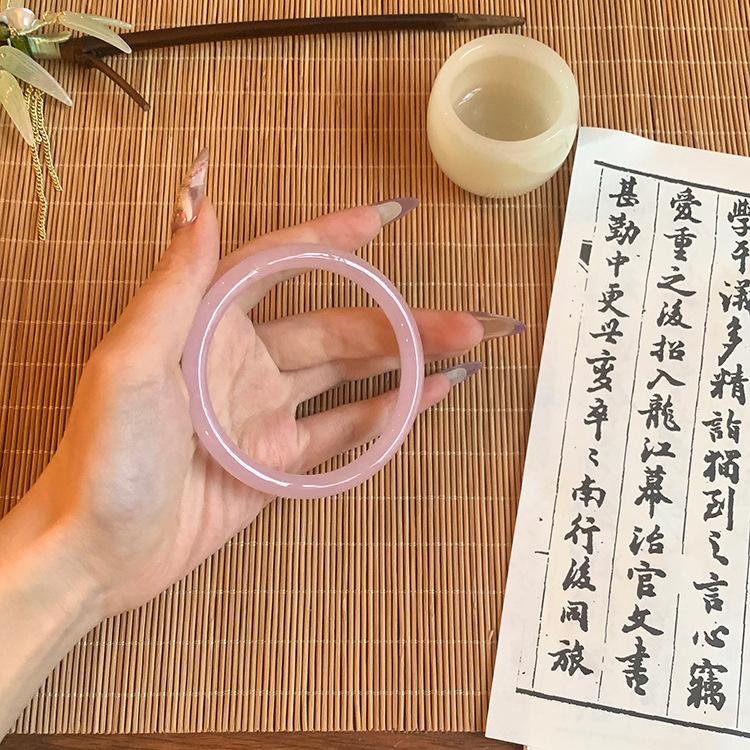 學平議多精詣獨到之言心竊
愛重之後招入龍江幕治官文書
甚勤中更世變卒〻南行後同旅